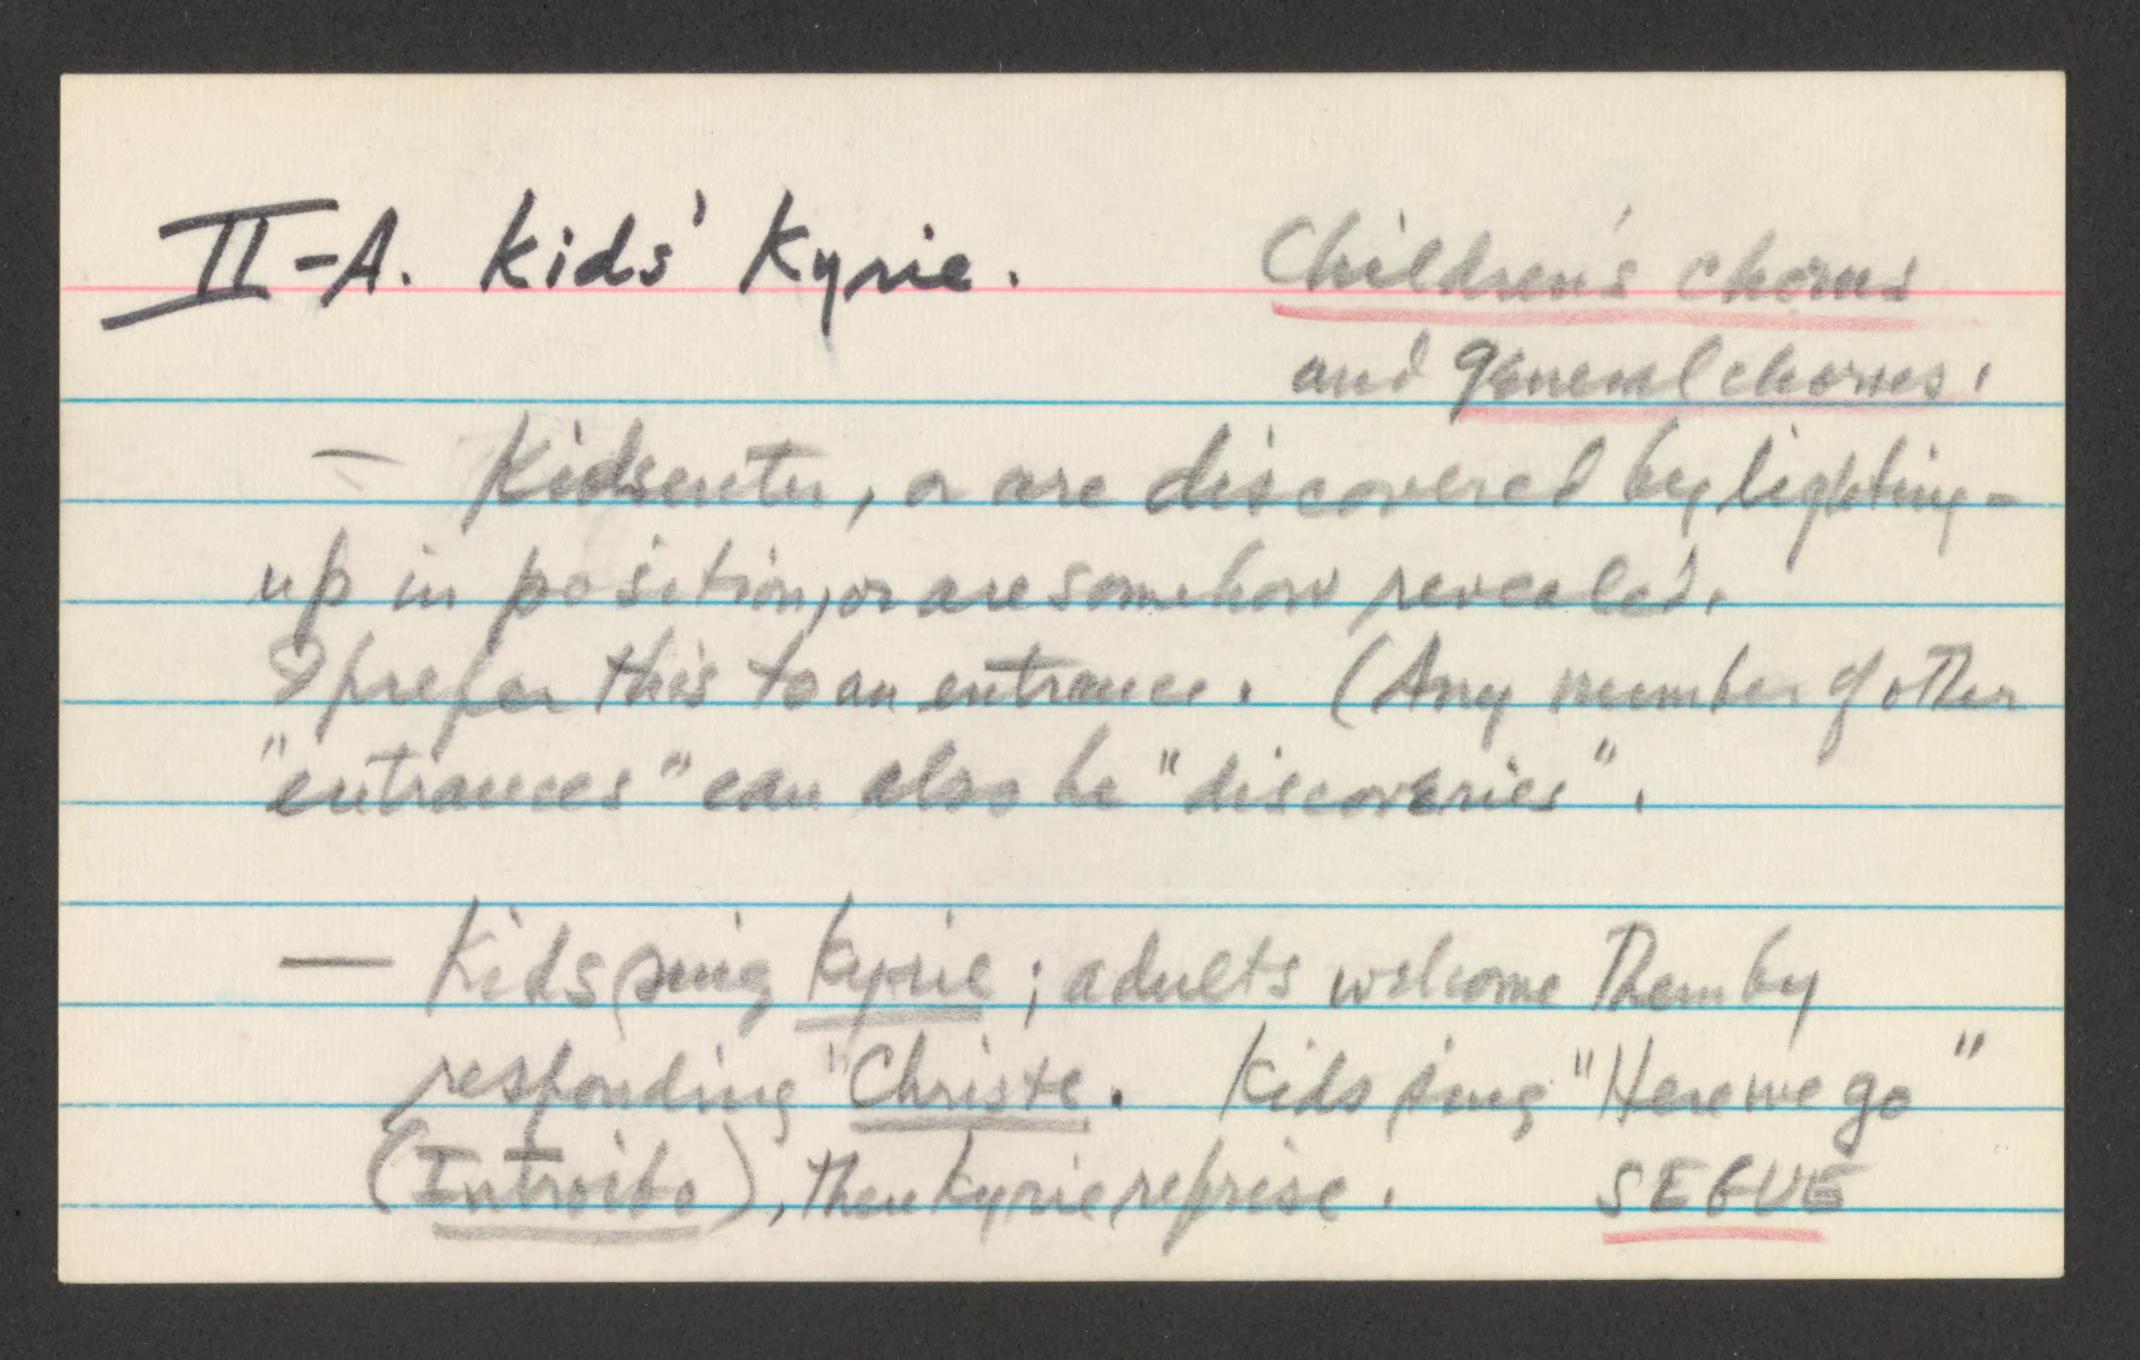 II-A. Kids' Kyrie. Children's chorus
and general chorus.
— Kids enter, or are discovered by lighting-
up in position, or are somehow revealed.
I prefer this to an entrance. (Any number of other
"entrances" can also be "discoveries".
— Kids sing Kyrie; adults welcome them by
responding "Christe. Kids sing "Here we go"
(Introibo), then Kyrie reprise. SEGUE